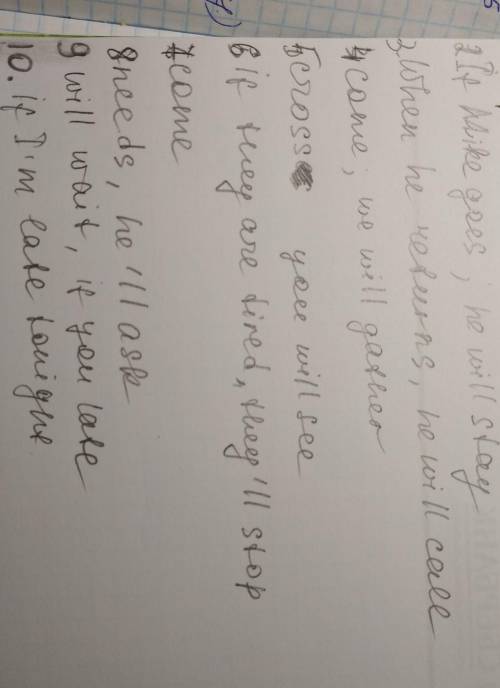 2 If Mike goes, he will stay
3 When he returns, he will call
4 come; we will gather
5 cross you will see
6 if they are tired, they'll stop
7 come
8 needs, he'll ask
9 will wait, if you late
10. if I'm late tonight